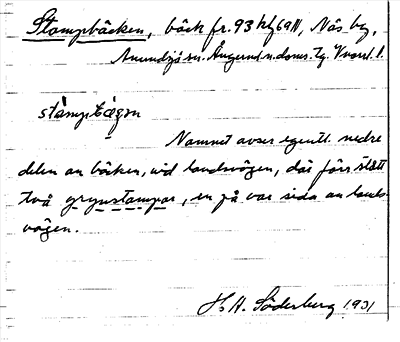 Stampbäcken, bäck fr. 93 Hfg 69 N, Näs by,
Anundsjö sn. Ångerm. n. doms. tg. V. norrl. l.
stàmpbæ̀gən
Namnet avser egentl. nedre
delen av bäcken, vid landsvägen, där förr stått
två grynstampar, en på var sida av lands-
vägen.
H. Söderberg 1931